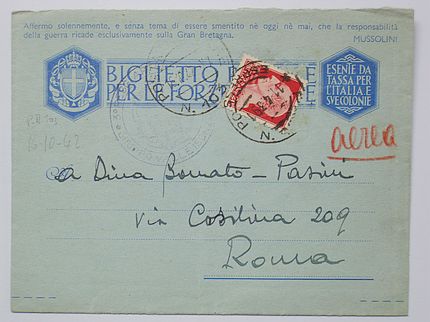 Affermo solennemente, e senza tema di essere smentito nè oggi nè mai, che la responsabilità
della guerra ricade esclusivamente sulla Gran Bretagna.
MUSSOLINI
BIGLIETTO
PER LE FORZE
ESENTE DA
TASSA PER
L'ITALIA E
SVE COLONIE
N. 102
aerea
16-10-42
a Dina Bornato - Pasini
Via Casilina 209
Roma